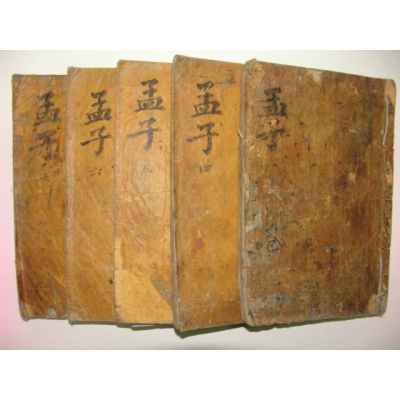 孟子
七
孟子
六
孟子
五
孟子
四
孟子